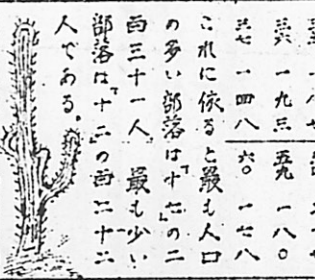 三六 一九三 五九 一八〇
三七 一四八 六〇 一七八
これに依ると最も人口
の多い部落は「十六」の二
百三十一人 最も少い
部落は「十二」の百二十二
人である。